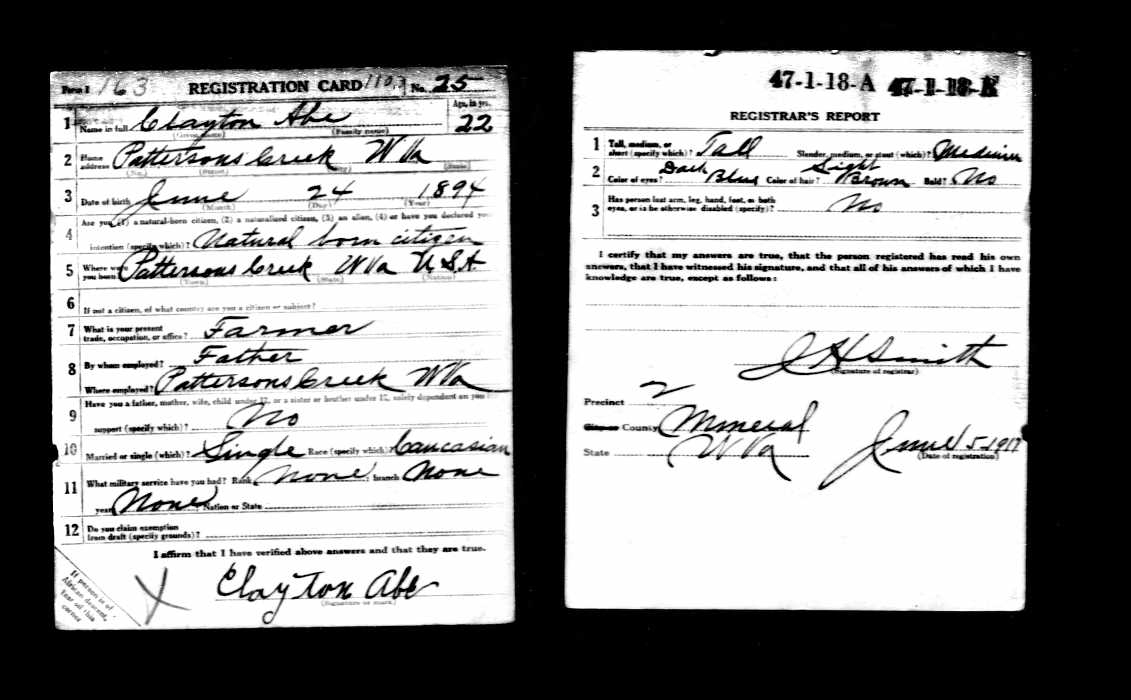 Form 1 163 REGISTRATION CARD 1103 No. 25
1 Name in full Clayton Abe Age, in yrs. 22
(Given name) (Family name)
2 Home address Pattersons Creek W Va
(No.) (Street) (City) (State)
3 Date of birth June 24 1894
(Month) (Day) (Year)
Are you (1) a natural-born citizen, (2) a naturalized citizen, (3) an alien, (4) or have you declared your
4 intention (specify which)? Natural born citizen
5 Where were you born? Pattersons Creek W Va U.S.A.
(Town) (State) (Nation)
6 If not a citizen, of what country are you a citizen or subject?
7 What is your present trade, occupation, or office? Farmer
8 By whom employed? Father
Where employed? Pattersons Creek W Va
9 Have you a father, mother, wife, child under 12, or a sister or brother under 12, solely dependent on you for
support (specify which)? No
10 Married or single (which)? Single Race (specify which)? Caucasian
11 What military service have you had? Rank None; branch None
years None; Nation or State
12 Do you claim exemption from draft (specify grounds)?
I affirm that I have verified above answers and that they are true.
Clayton Abe
(Signature or mark)
If person is of African descent, tear off this corner
X
47-1-18-A 47-1-18-A
REGISTRAR'S REPORT
1 Tall, medium, or short (specify which)? Tall Slender, medium, or stout (which)? Medium
2 Color of eyes? Dark Blue Color of hair? Light Brown Bald? No
3 Has person lost arm, leg, hand, foot, or both eyes, or is he otherwise disabled (specify)? No
I certify that my answers are true, that the person registered has read his own
answers, that I have witnessed his signature, and that all of his answers of which I have
knowledge are true, except as follows:
J H Smith
(Signature of registrar)
Precinct 2
City or County Mineral
State W Va June 5-1917
(Date of registration)